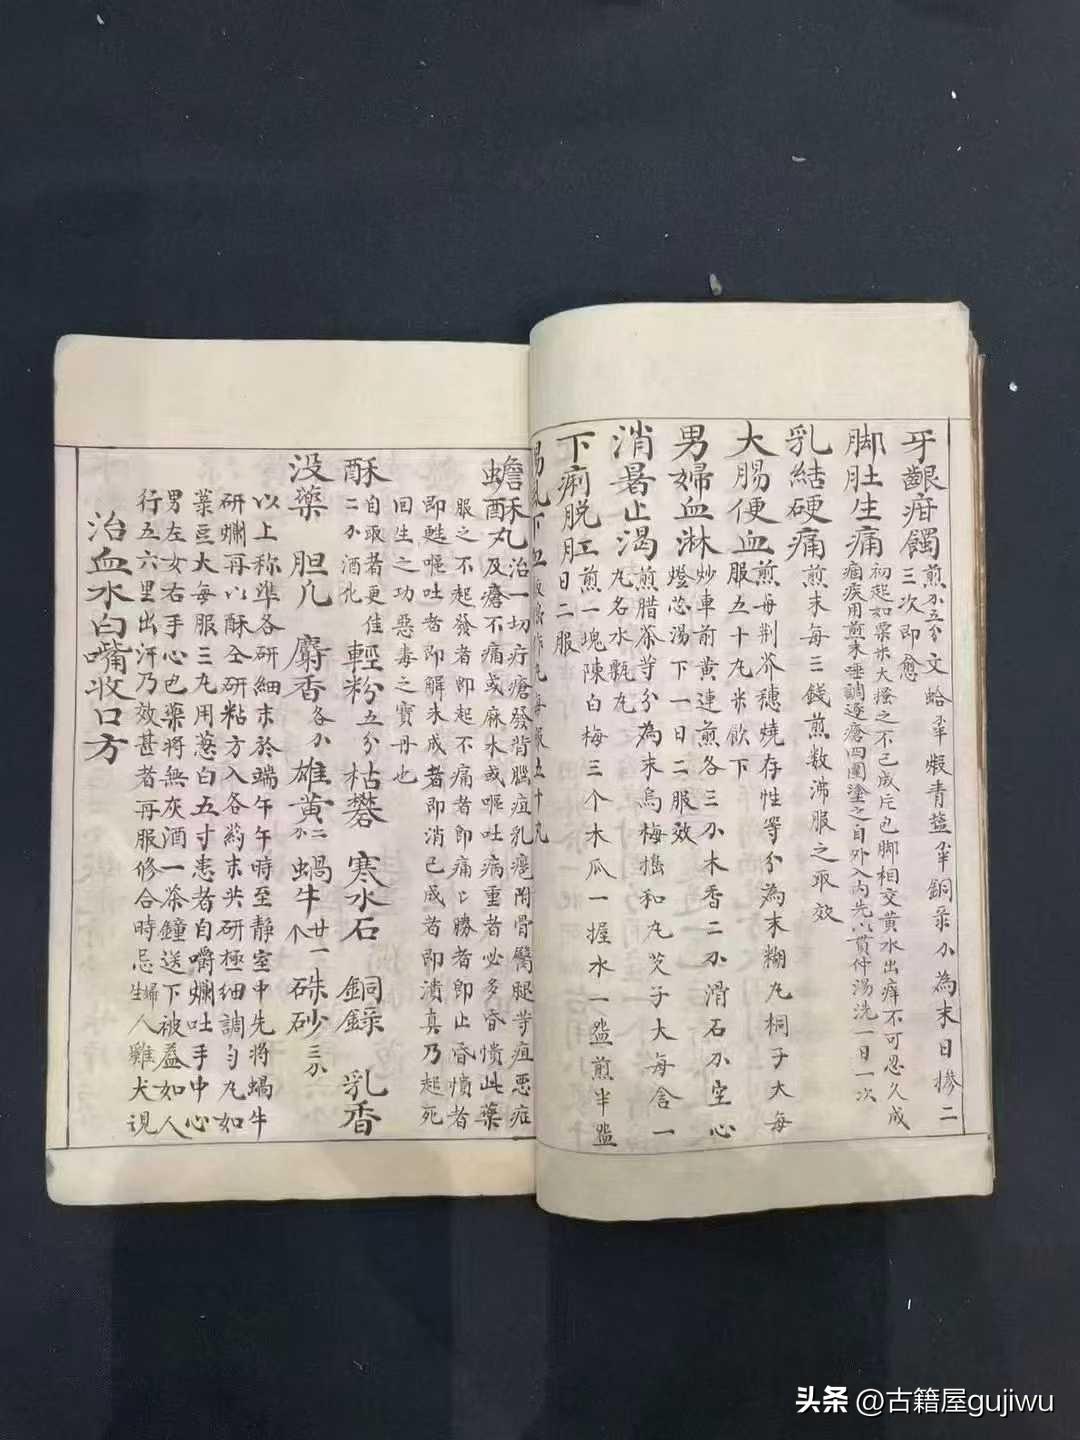 牙齦疳䘌煎尒五分文蛤半煅青盐半銅彔尒為末日摻二
三次即愈
脚肚生痛初起如粟米大搔之不已成片包脚相交黄水出痒不可忍久成
痼疾用煎末唾調逐瘡四圍塗之自外入内先以貫仲湯洗一日一次
乳結硬痛煎末每三錢煎数沸服之取效
大腸便血煎每荆芥穗燒存性等分為末糊丸桐子大每
服五十丸米飲下
男婦血淋炒車前黄連煎各三尒木香二尒滑石尒空心
燈芯湯下一日二服效
消暑止渴煎腊茶等分為末烏梅搗和丸芡子大每含一
丸名水瓢丸
下痢脱肛煎一塊陳白梅三个木瓜一握水一盌煎半盌
日二服
丸每服五十丸
蟾酥丸治一切疔瘡發背腦疽乳癰附骨臀腿等疽惡症
及瘡不痛或麻木或嘔吐病重者必多昏憒此藥
服之不起發者即起不痛者即痛〻勝者即止昏憤者
即甦嘔吐者即解未成者即消已成者即潰真乃起死
回生之功惡毒之寶丹也
酥二尒酒化自取者更佳 輕粉五分 枯礬 寒水石 銅錄 乳香
没藥 胆凡 麝香各尒 雄黄二尒 蝸牛廿一个 硃砂三尒
以上称準各研細末於端午午時至静室中先將蝸牛
研爛再以酥仝研粘方入各葯末共研極细調勻丸如
菉豆大每服三丸用葱白五寸患者自嚼爛吐手中心
男左女右手心包藥將無灰酒一茶鐘送下被盖如人
行五六里出汗乃效甚者再服修合時忌婦人雞犬視
治血水白嘴收口方
头条 @古籍屋gujiwu